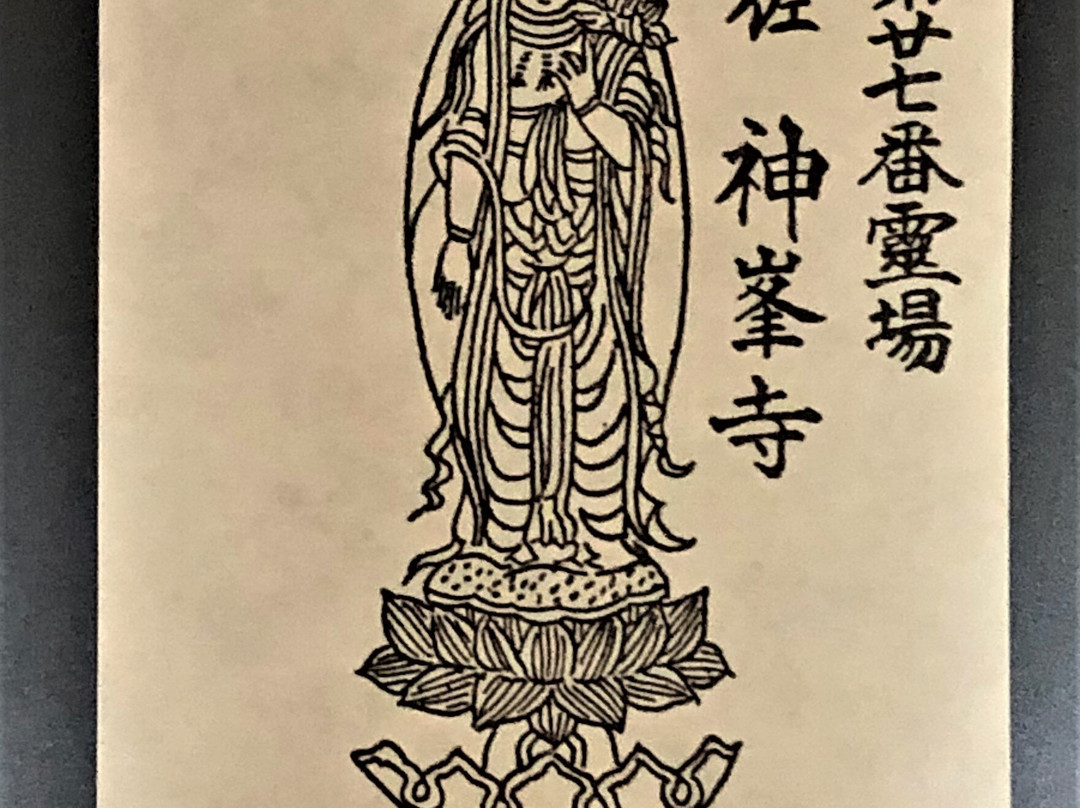 廿七番靈場
佐 神峯寺